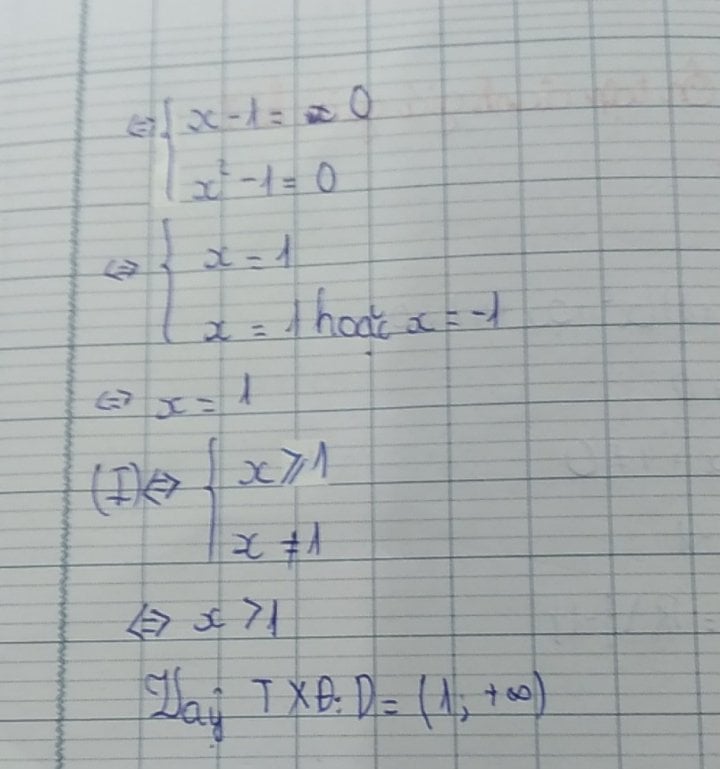 ⇔ { x - 1 = 0
x² - 1 = 0
⇔ { x = 1
x = 1 hoặc x = -1
⇔ x = 1
(I) ⇔ { x ⩾ 1
x ≠ 1
⇔ x > 1
Vậy TXĐ: D = (1; +∞)